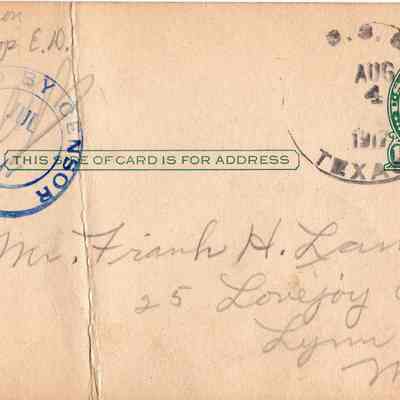 op E.D.
BY CENSOR
JUL
U.S.S.
AUG
4
1917
TEXAS
THIS SIDE OF CARD IS FOR ADDRESS
Mr. Frank H. Lam
25 Lovejoy
Lynn
M